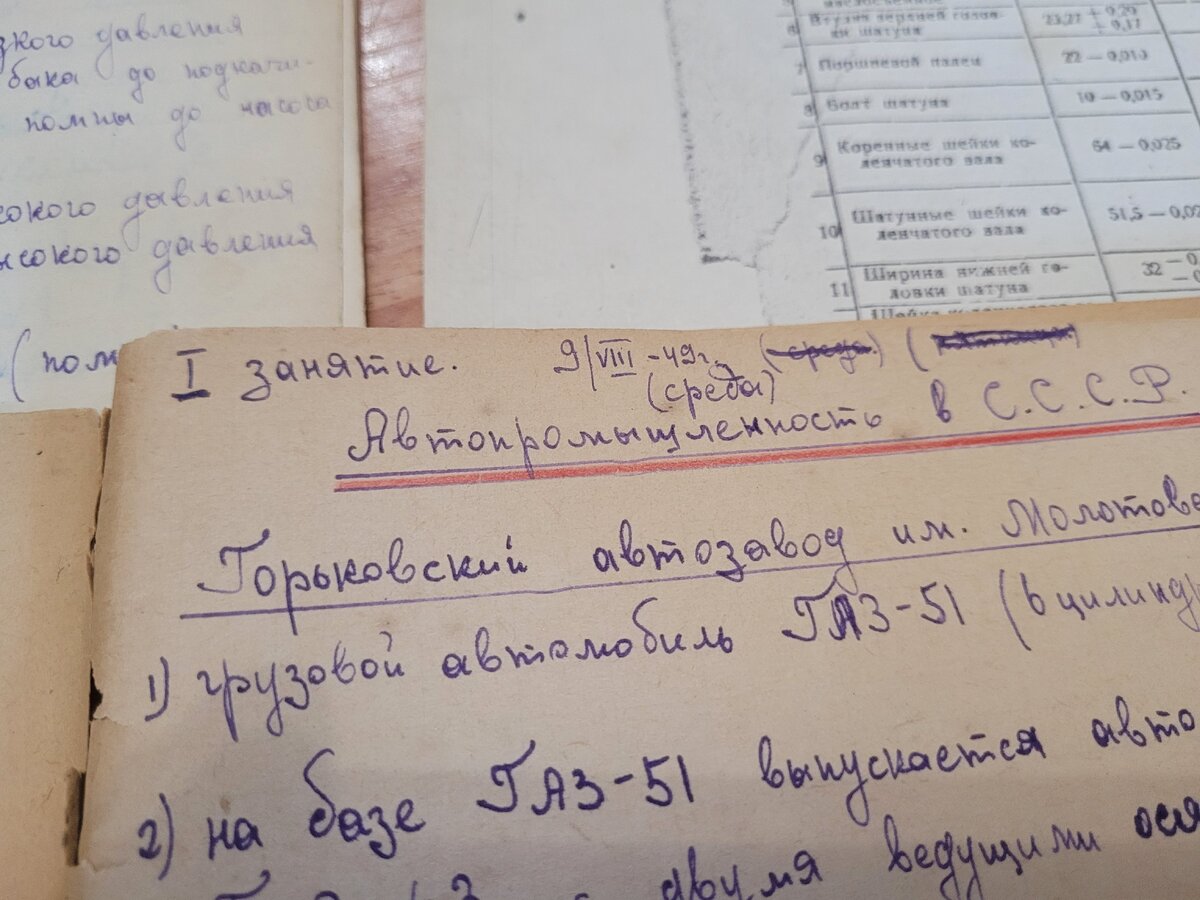 давления
бака до подкачи-
помпы до насоса
давления
давления
6 Втулка верхней голов-
ки шатуна
7 Поршневой палец 22 — 0,010
8 Болт шатуна 10 — 0,015
9 Коренные шейки ко-
ленчатого вала 64 — 0,025
10 Шатунные шейки ко-
ленчатого вала 51,5 —
11 Ширина нижней го-
ловки шатуна 32
I занятие. 9/VIII-49г. (среда) (
(среда)
Автопромышленность в С.С.С.Р.
Горьковский автозавод им.
1) грузовой автомобиль ГАЗ-51 (
2) на базе ГАЗ-51 выпускается авто
двумя ведущими